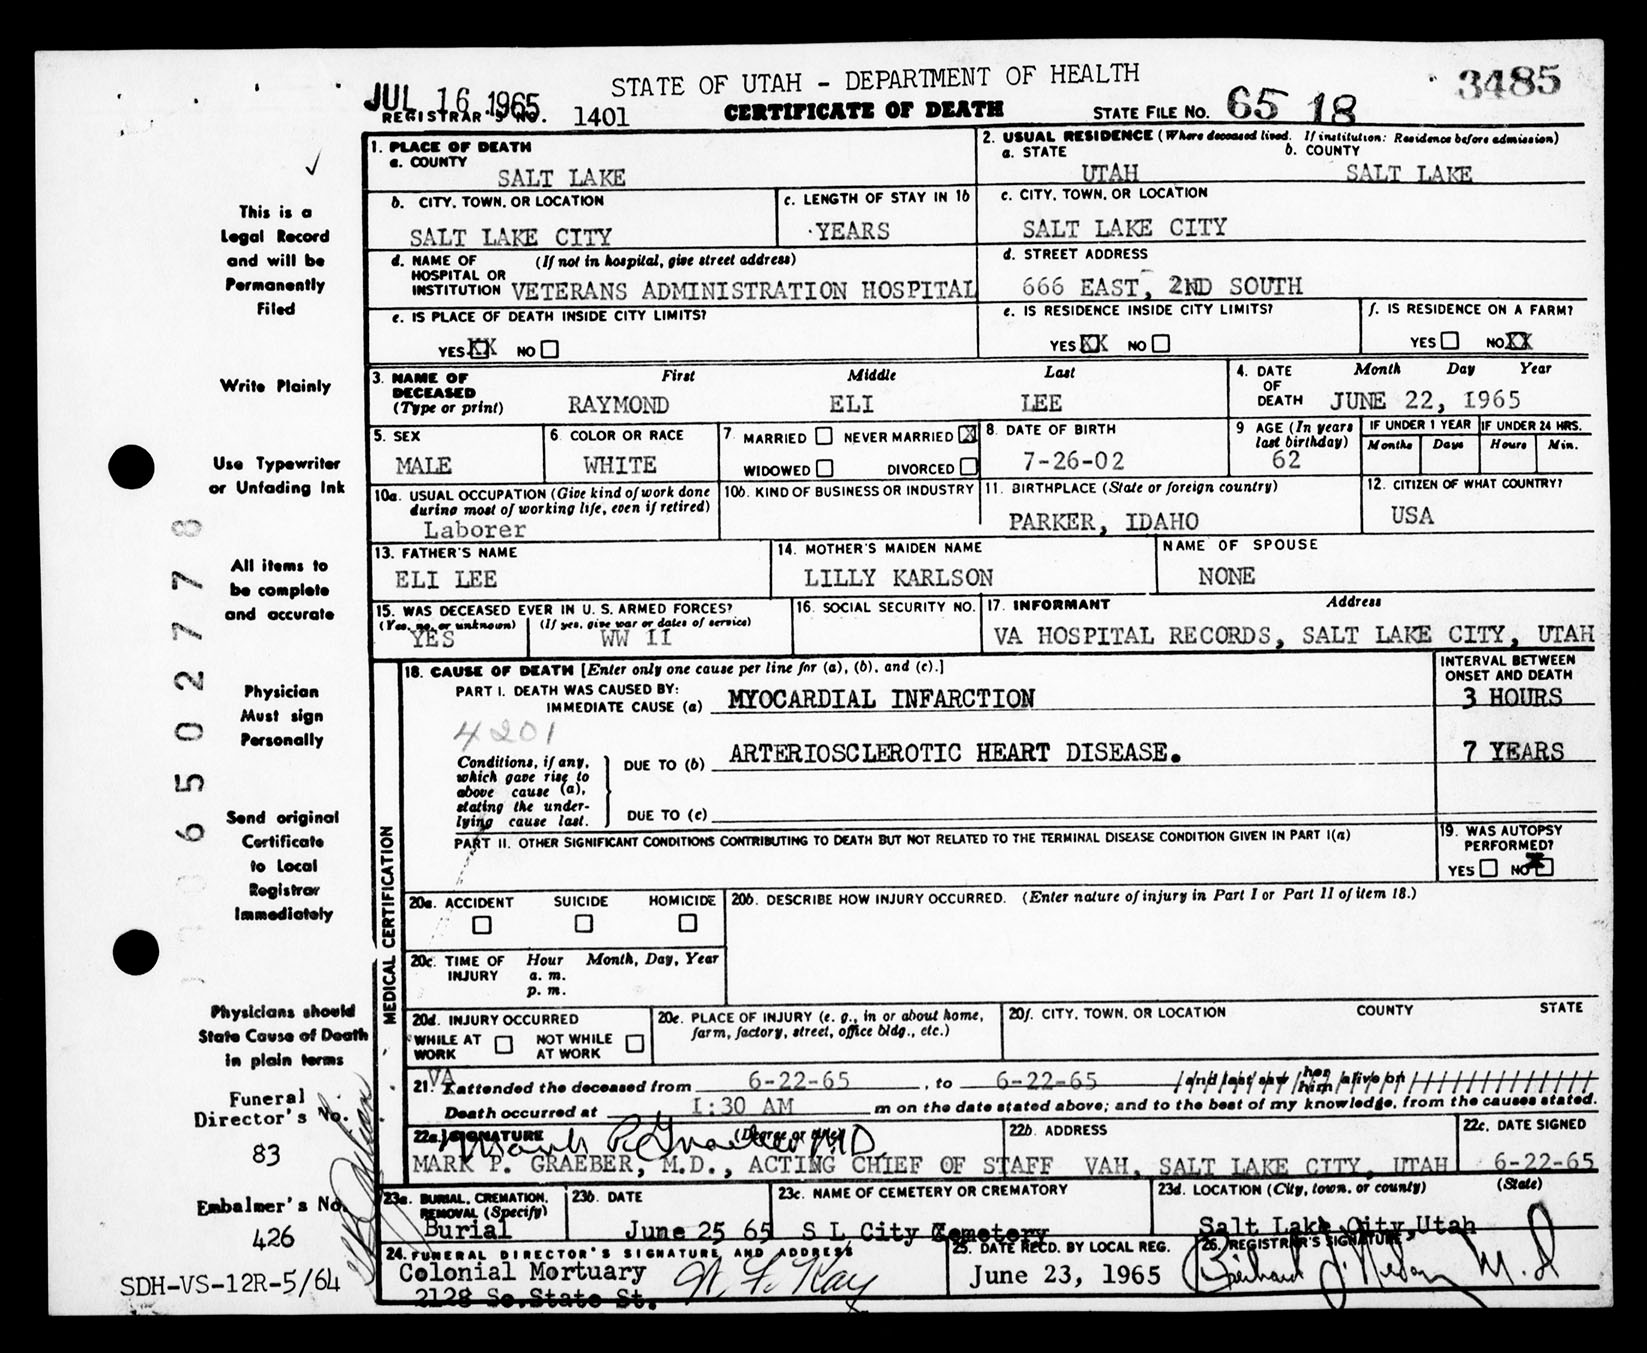 STATE OF UTAH - DEPARTMENT OF HEALTH
3485
JUL 16 1965
REGISTRAR'S NO. 1401
CERTIFICATE OF DEATH
STATE FILE NO. 65 18
1. PLACE OF DEATH
a. COUNTY
SALT LAKE
2. USUAL RESIDENCE (Where deceased lived. If institution: Residence before admission)
a. STATE b. COUNTY
UTAH SALT LAKE
b. CITY, TOWN, OR LOCATION
SALT LAKE CITY
c. LENGTH OF STAY IN 1b
YEARS
c. CITY, TOWN, OR LOCATION
SALT LAKE CITY
d. NAME OF HOSPITAL OR INSTITUTION (If not in hospital, give street address)
VETERANS ADMINISTRATION HOSPITAL
d. STREET ADDRESS
666 EAST, 2ND SOUTH
e. IS PLACE OF DEATH INSIDE CITY LIMITS?
YES XX NO
e. IS RESIDENCE INSIDE CITY LIMITS?
YES XX NO
f. IS RESIDENCE ON A FARM?
YES NO XX
3. NAME OF DECEASED (Type or print)
First Middle Last
RAYMOND ELI LEE
4. DATE OF DEATH Month Day Year
JUNE 22, 1965
5. SEX
MALE
6. COLOR OR RACE
WHITE
7. MARRIED NEVER MARRIED X
WIDOWED DIVORCED
8. DATE OF BIRTH
7-26-02
9 AGE (In years last birthday)
62
IF UNDER 1 YEAR IF UNDER 24 HRS.
Months Days Hours Min.
10a. USUAL OCCUPATION (Give kind of work done during most of working life, even if retired)
Laborer
10b. KIND OF BUSINESS OR INDUSTRY
11. BIRTHPLACE (State or foreign country)
PARKER, IDAHO
12. CITIZEN OF WHAT COUNTRY?
USA
13. FATHER'S NAME
ELI LEE
14. MOTHER'S MAIDEN NAME
LILLY KARLSON
NAME OF SPOUSE
NONE
15. WAS DECEASED EVER IN U. S. ARMED FORCES?
(Yes, no, or unknown) (If yes, give war or dates of service)
YES WW II
16. SOCIAL SECURITY NO.
17. INFORMANT Address
VA HOSPITAL RECORDS, SALT LAKE CITY, UTAH
MEDICAL CERTIFICATION
18. CAUSE OF DEATH [Enter only one cause per line for (a), (b), and (c).]
INTERVAL BETWEEN ONSET AND DEATH
PART I. DEATH WAS CAUSED BY:
IMMEDIATE CAUSE (a) MYOCARDIAL INFARCTION 3 HOURS
4201
Conditions, if any, which gave rise to above cause (a), stating the underlying cause last.
DUE TO (b) ARTERIOSCLEROTIC HEART DISEASE. 7 YEARS
DUE TO (c)
PART II. OTHER SIGNIFICANT CONDITIONS CONTRIBUTING TO DEATH BUT NOT RELATED TO THE TERMINAL DISEASE CONDITION GIVEN IN PART I(a)
19. WAS AUTOPSY PERFORMED?
YES NO X
20a. ACCIDENT SUICIDE HOMICIDE
20b. DESCRIBE HOW INJURY OCCURRED. (Enter nature of injury in Part I or Part II of item 18.)
20c. TIME OF INJURY Hour Month, Day, Year
a. m.
p. m.
20d. INJURY OCCURRED
WHILE AT WORK NOT WHILE AT WORK
20e. PLACE OF INJURY (e. g., in or about home, farm, factory, street, office bldg., etc.)
20f. CITY, TOWN, OR LOCATION COUNTY STATE
21. VA attended the deceased from 6-22-65, to 6-22-65 and last saw her him alive on
Death occurred at 1:30 AM m on the date stated above; and to the best of my knowledge, from the causes stated.
22a. SIGNATURE (Degree or title)
Mark P. Graeber M.D.
MARK P. GRAEBER, M.D., ACTING CHIEF OF STAFF
22b. ADDRESS
VAH, SALT LAKE CITY, UTAH
22c. DATE SIGNED
6-22-65
23a. BURIAL, CREMATION, REMOVAL (Specify)
Burial
23b. DATE
June 25 65
23c. NAME OF CEMETERY OR CREMATORY
S L City Cemetery
23d. LOCATION (City, town, or county) (State)
Salt Lake City, Utah
24. FUNERAL DIRECTOR'S SIGNATURE AND ADDRESS
Colonial Mortuary
2128 So. State St.
25. DATE RECD. BY LOCAL REG.
June 23, 1965
26. REGISTRAR'S SIGNATURE
M. D
This is a
Legal Record
and will be
Permanently
Filed
Write Plainly
Use Typewriter
or Unfading Ink
All items to
be complete
and accurate
Physician
Must sign
Personally
Send original
Certificate
to Local
Registrar
Immediately
Physicians should
State Cause of Death
in plain terms
Funeral
Director's No.
83
Embalmer's No.
426
SDH-VS-12R-5/64
6 5 0 2 7 7 8